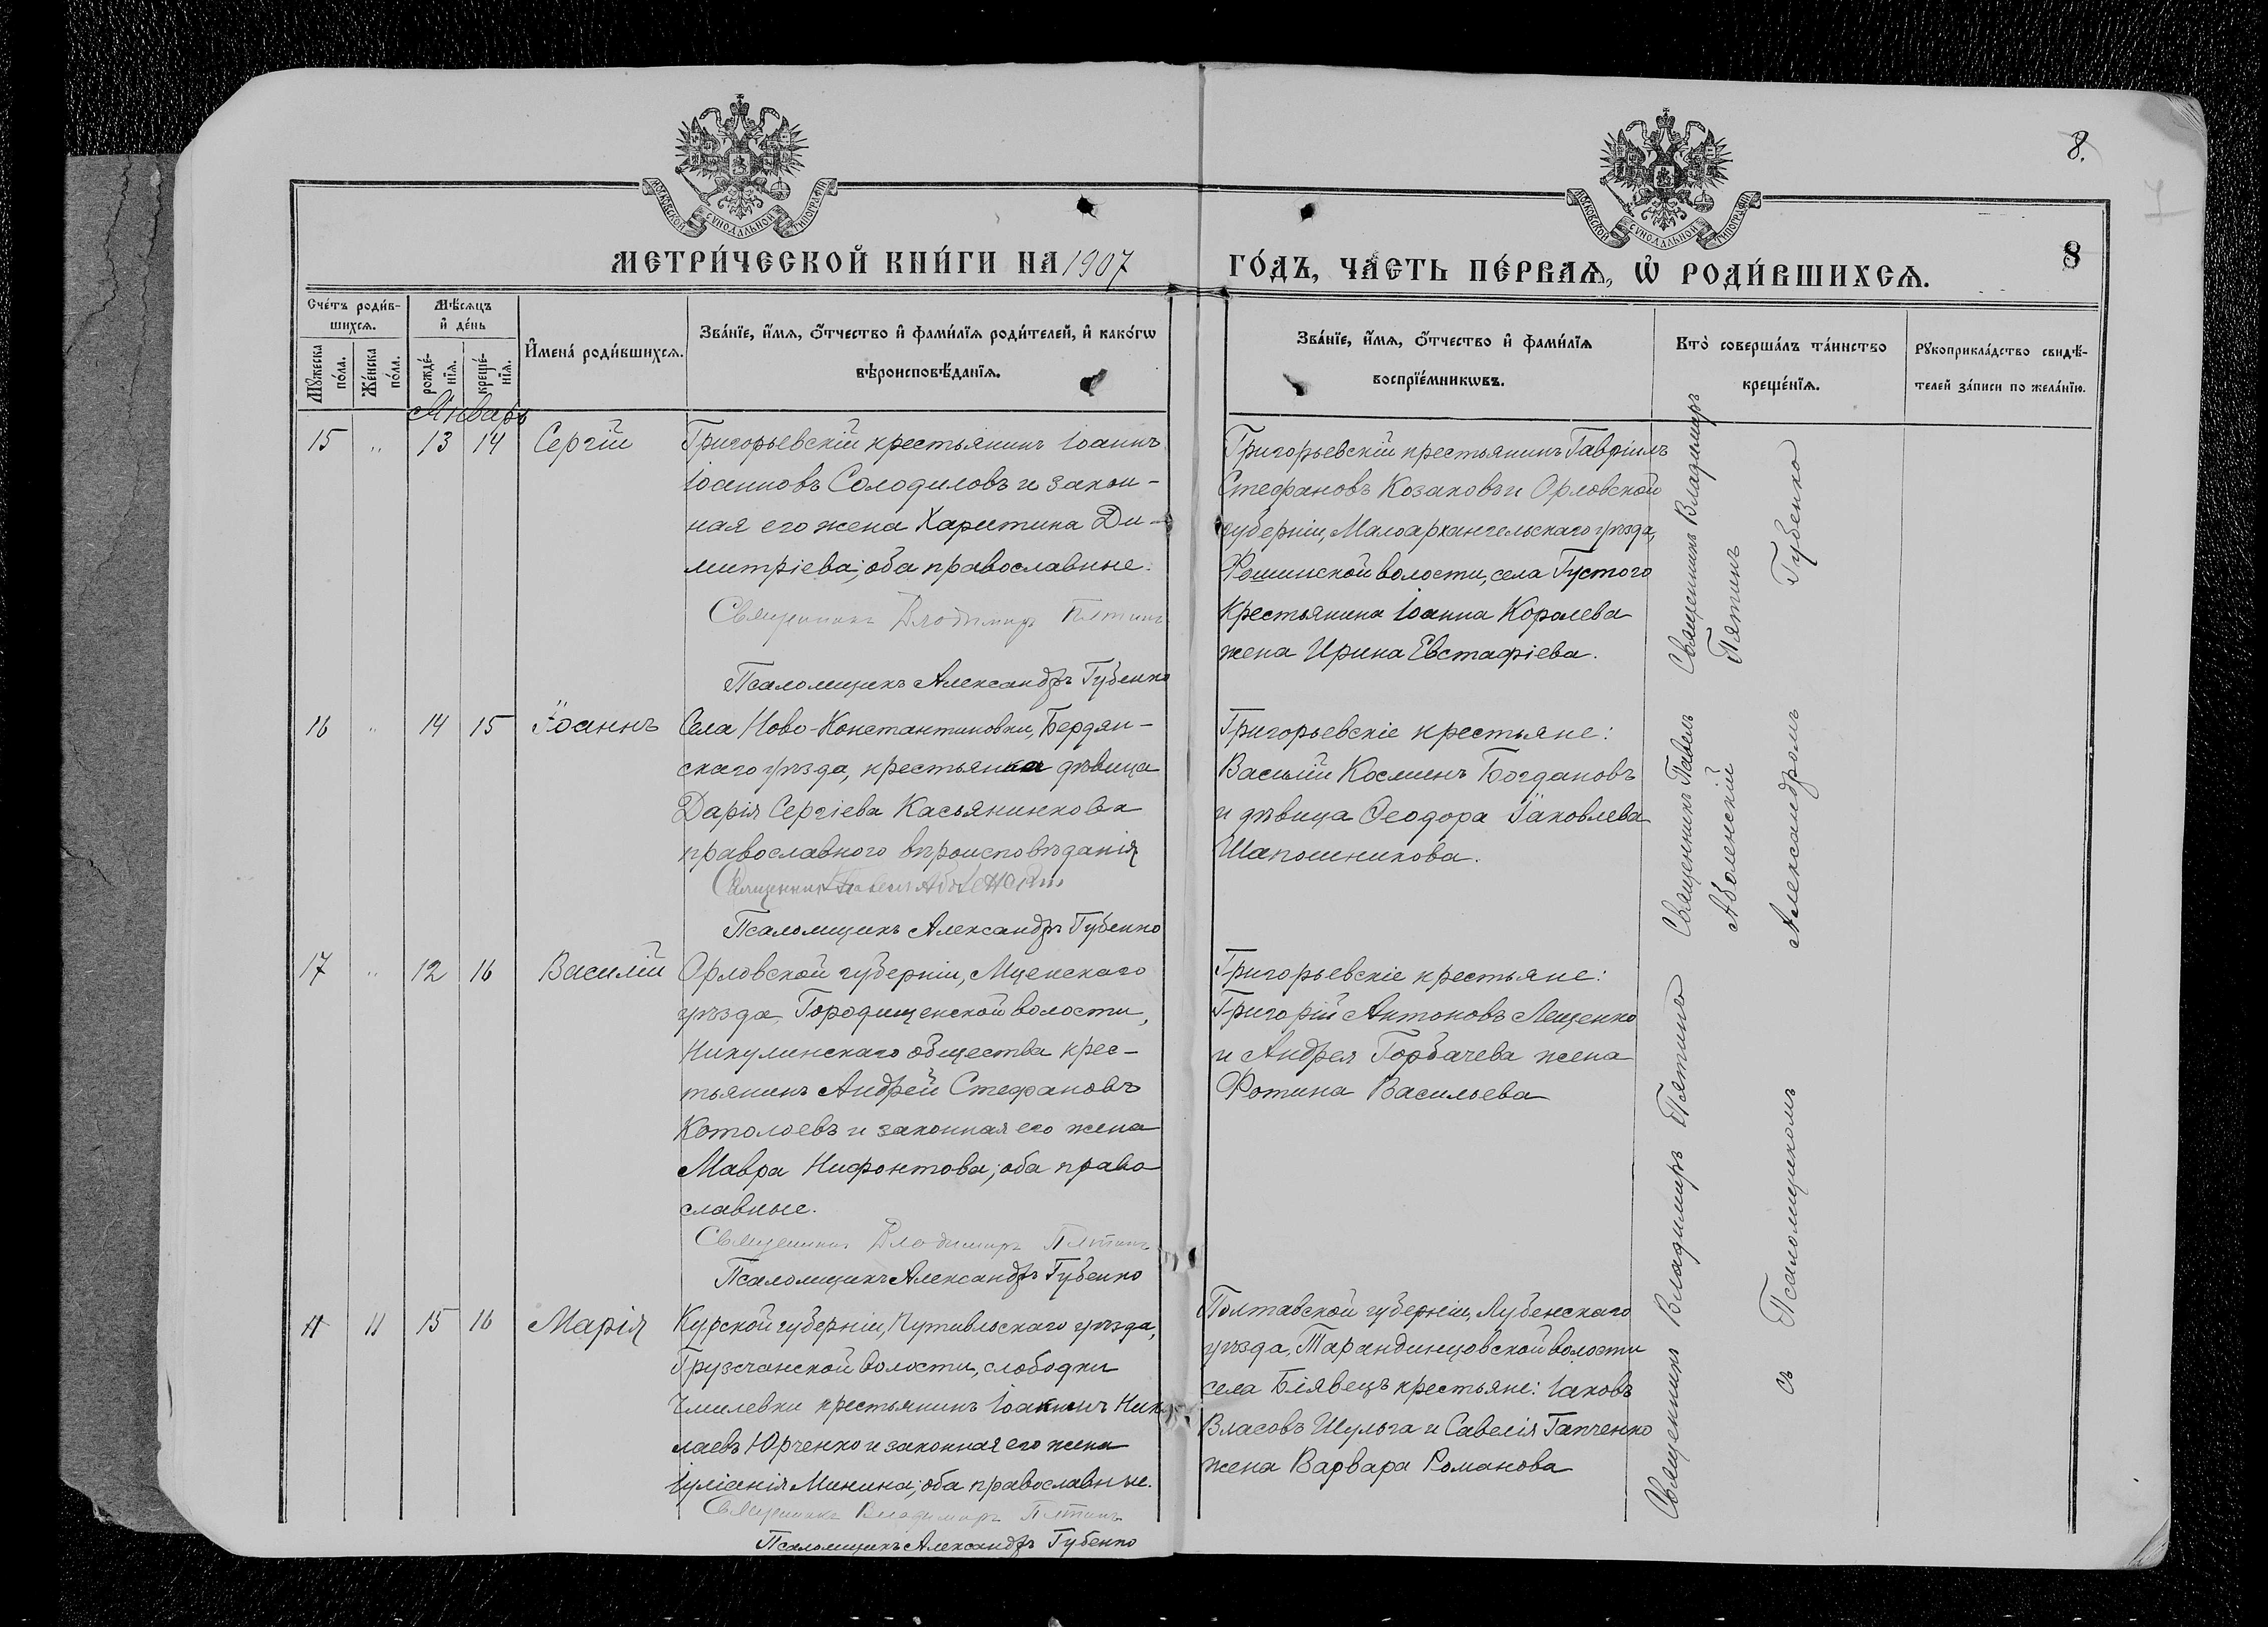 8.
МОСКОВСКОЙ СѴНОДАЛЬНОЙ ТИПОГРАФІИ
МОСКОВСКОЙ СѴНОДАЛЬНОЙ ТИПОГРАФІИ
МЕТРИ́ЧЕСКОЙ КНИ́ГИ НА 1907
ГО́ДЪ, ЧА́СТЬ ПЕ́РВАѦ, Ѡ҆ РОДИ́ВШИХСѦ.
8
Сче́тъ роди́в-
шихсѧ.
Мѣ́сѧцъ
и҆ де́нь
Мꙋ́жеска
по́ла.
Же́нска
по́ла.
рожде́-
нїѧ.
креще́-
нїѧ.
И҆мена̀ роди́вшихсѧ.
Зва́нїе, и҆́мѧ, ѻ҆́тчество и҆ фами́лїѧ роди́телей, и҆ како́гѡ
вѣроисповѣ́данїѧ.
Зва́нїе, и҆́мѧ, ѻ҆́тчество и҆ фами́лїѧ
воспрїе́мникѡвъ.
Кто̀ соверша́лъ та́инство
креще́нїѧ.
Рꙋкоприкла́дство свидѣ́-
телей за́писи по жела́нїю.
Январь
15 „ 13 14 Сергій
Григорьевскій крестьянинъ Іоаннъ
Іоанновъ Солодиловъ и закон-
ная его жена Харитина Ди-
митріева; оба православные.
Священникъ Владимиръ Пятинъ
Псаломщикъ Александръ Губенко
Григорьевскій крестьянинъ Гавріилъ
Стефановъ Козаковъ и Орловской
губерніи, Малоархангельскаго уѣзда,
волости, села Густого
крестьянина Іоанна Королева
жена Ирина Евстафіева.
Священникъ Владимиръ
Пятинъ
16 „ 14 15 Іоаннъ
Села Ново-Константиновки, Бердян-
скаго уѣзда, крестьянка дѣвица
Дарія Сергіева Касьянинкова
православного вѣроисповѣданія
Священникъ Павелъ Аболенскій
Псаломщикъ Александръ Губенко
Григорьевскіе крестьяне:
Василій Косминъ Богдановъ
и дѣвица Ѳеодора Іаковлева
Шапошникова.
Священникъ Павелъ
Аболенскій
17 „ 12 16 Василій
Орловской губерніи, Мценскаго
уѣзда, Городищенской волости,
Никулинскаго общества крес-
тьянинъ Андрей Стефановъ
Котолоевъ и законная его жена
Мавра Нифонтова; оба право
славные.
Священникъ Владимиръ Пятинъ
Псаломщикъ Александръ Губенко
Григорьевскіе крестьяне:
Григорій Антоновъ Лещенко
и Андрея Горбачева жена
Фотина Васильева
11 11 15 16 Марія
Курской губерніи, Путивльскаго уѣзда,
Грузсчанской волости, слободки
Чмилевки крестьянинъ Іоакимъ Нико
лаевъ Юрченко и законная его жена
Іуліанія Минина; оба православные.
Священникъ Владимиръ Пятинъ
Псаломщикъ Александръ Губенко
Полтавской губерніи, Лубенскаго
уѣзда, Тарандинцовской волости
села Біявецъ крестьяне: Іаковъ
Власовъ Шульга и Савелія Гапченко
жена Варвара Романова
Священникъ Владимиръ Пятинъ
съ Псаломщикомъ Александромъ Губенко